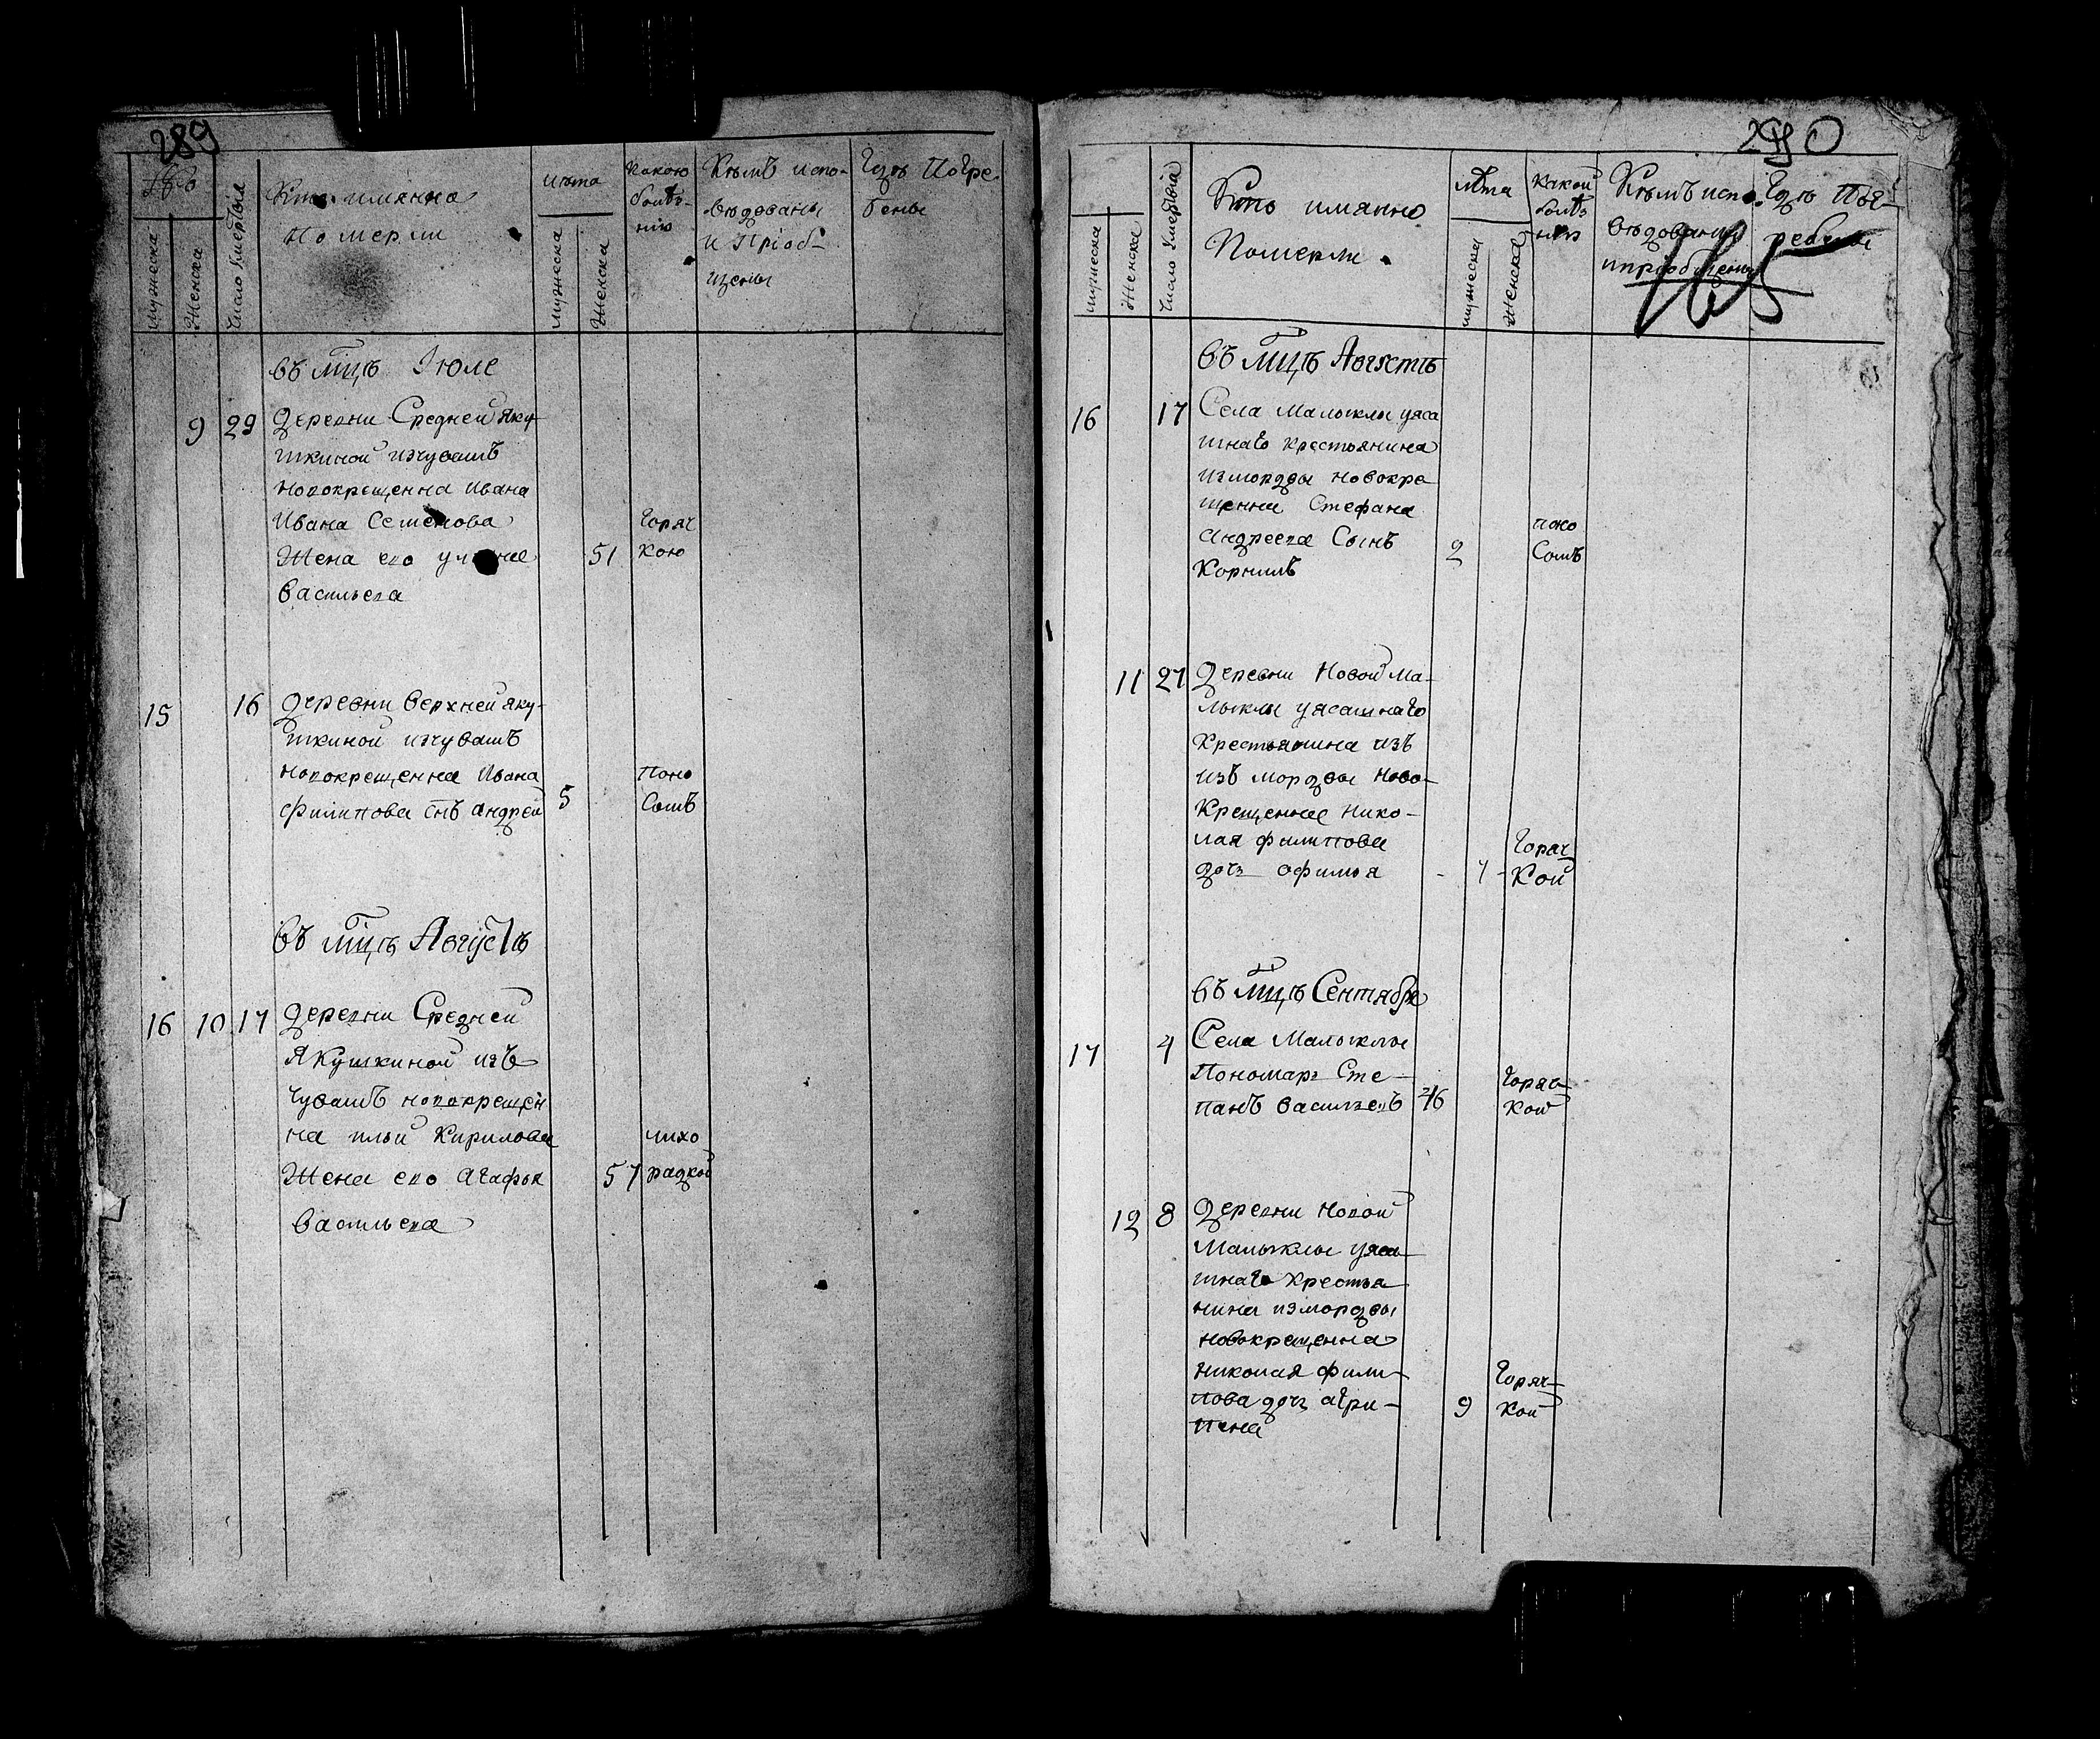 289
Кто имянно
Померли
лѣта
какою
болѣз-
нию
Кѣмъ испо-
вѣдованы
и приоб-
щены
Гдѣ Погре
бены
мужеска
женска
Число смертей
мужеска
женска
въ мцѣ Июле
9 29 Деревни Средней Яку
шкиной изчувашъ
новокрещенна Ивана
Ивана Семенова горяч
Жена его 51 кою
Васильева
15 16 Деревни Верхней Яку-
шкиной изчувашъ
новокрещенна Ивана поно
Филипова снъ Андрей 5 сомъ
въ мцѣ Августѣ
16 10 17 Деревни Средней
Якушкиной изъ
Чувашъ новокрещен
на Ильи Кирилова лихо
Жена его Агафья 57 радкой
Васильева
290
Кто имянно
Померли
лѣта
какой
болѣз
нию
Кѣмъ испо
вѣдованы
и приобщены
Гдѣ Пог-
ребены
мужеска
женска
Число смертей
мужеска
женска
въ мцѣ Августѣ
16 17 Села Малыклы уяса
шнаго крестьянина
измордвы новокре
щенна Стефана поно
Андреева Сынъ 2 сомъ
Корнилъ
11 27 Деревни Новой Ма-
лыклы уясашнаго
крестьянина изъ
изъ мордвы ново-
крещенна Нико-
лая Филипова горяч
дочь Офимья - 7 - кой
въ мцѣ Сентябре
17 4 Села Малыклы
Пономарь Сте- горяч-
панъ Васильевъ 46 кой
12 8 Деревни Новой
Малыклы уяса-
шнаго крестья-
нина измордвы
новокрещенна
Николая Фили- горяч-
пова дочь Агри- 9 кой
пена